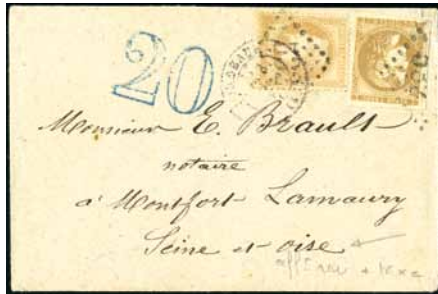 20
Monsieur E. Brault
notaire
à Montfort-Lamaury
Seine et oise